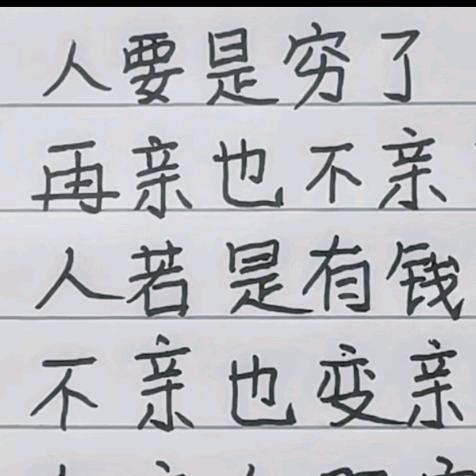 人要是穷了
再亲也不亲
人若是有钱
不亲也变亲